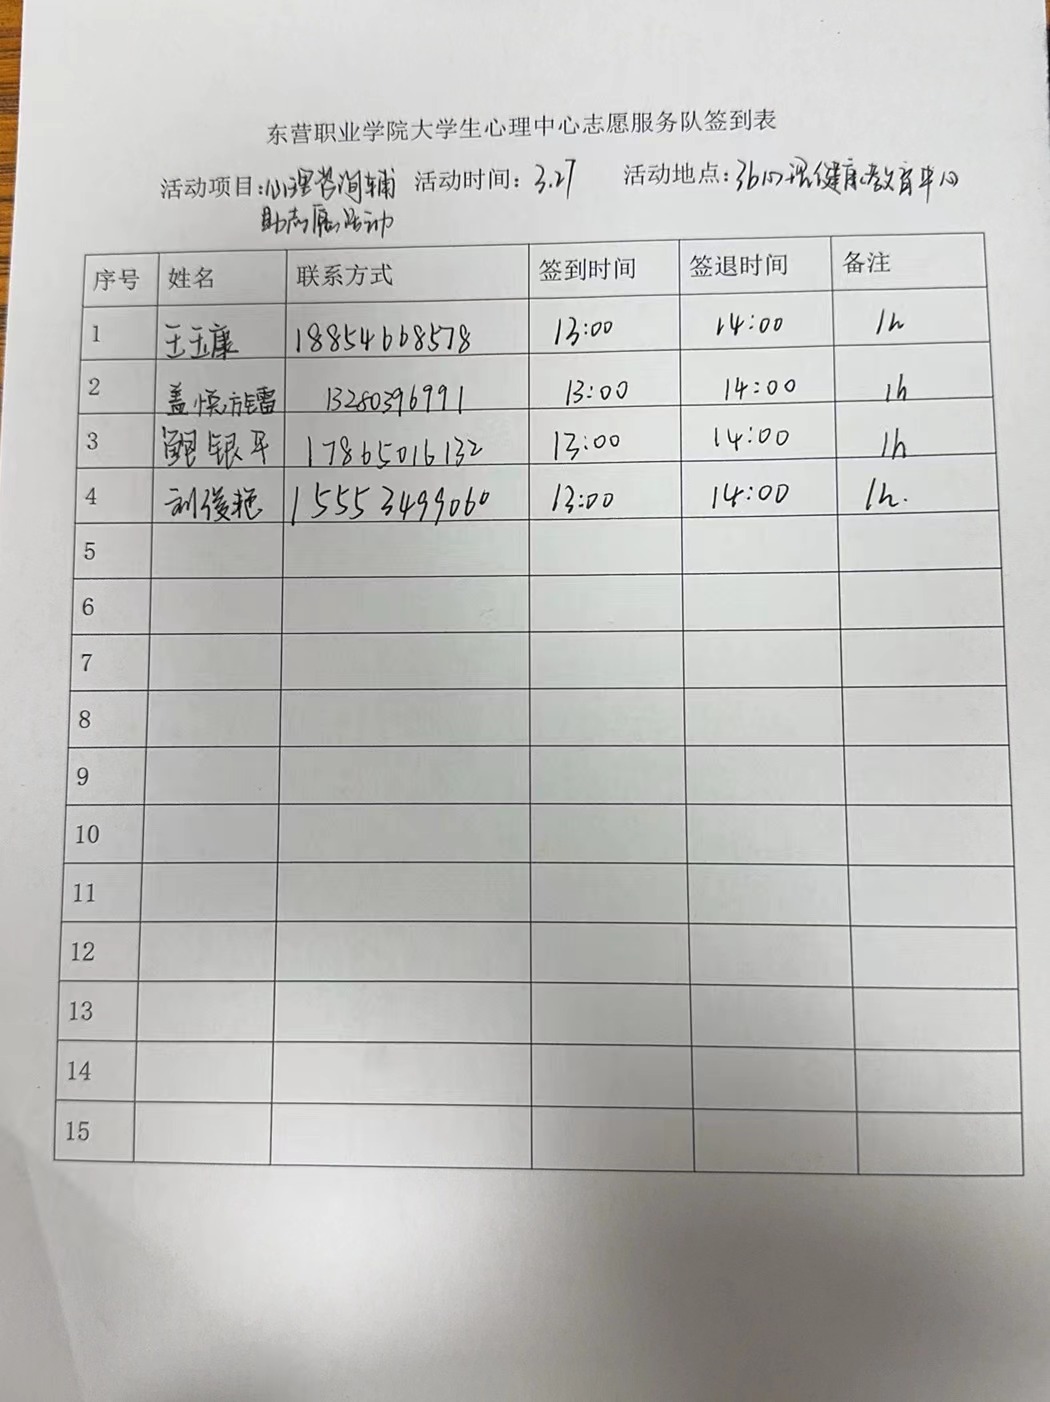 东营职业学院大学生心理中心志愿服务队签到表
活动项目:心理咨询辅 活动时间: 3.27 活动地点:36心理健康教育中心
助志愿活动
序号 姓名 联系方式 签到时间 签退时间 备注
1 王玉康 18854668578 13:00 14:00 1h
2 盖悦 13280396991 13:00 14:00 1h
3 鲍银平 17865016132 13:00 14:00 1h
4 刘俊艳 15553499060 13:00 14:00 1h.
5
6
7
8
9
10
11
12
13
14
15